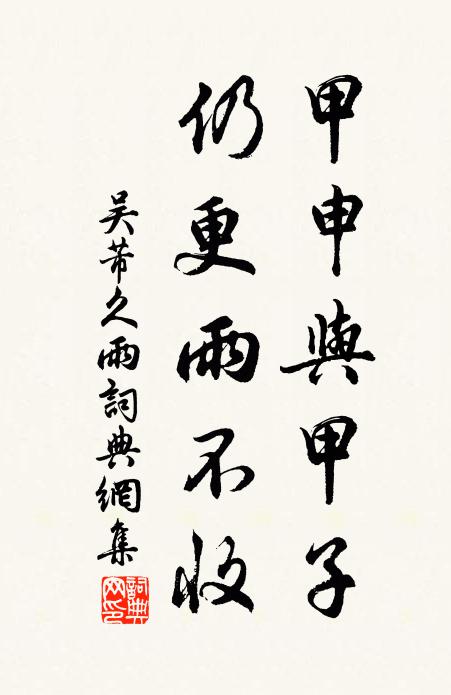 甲申與甲子
仍更雨不收
吴芾久雨詞典網集
詞典网印